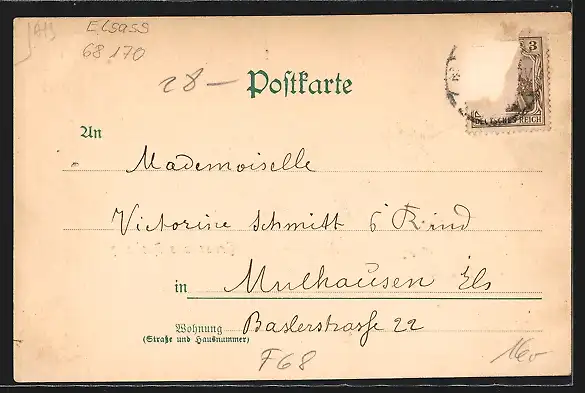 Elsass
68170
28 —
Postkarte
3
DEUTSCHES REICH
An
Mademoiselle
Victorine Schmitt
in Mulhausen Els
Wohnung Baslerstrasse 22
(Straße und Hausnummer)
F68